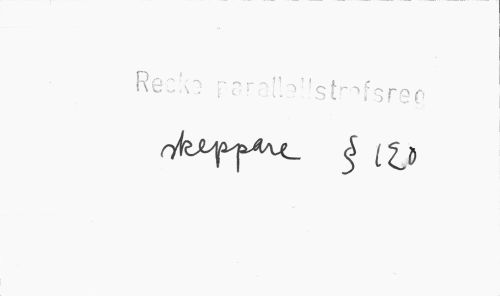 Recke parallellstrofsreg
skeppare § 120